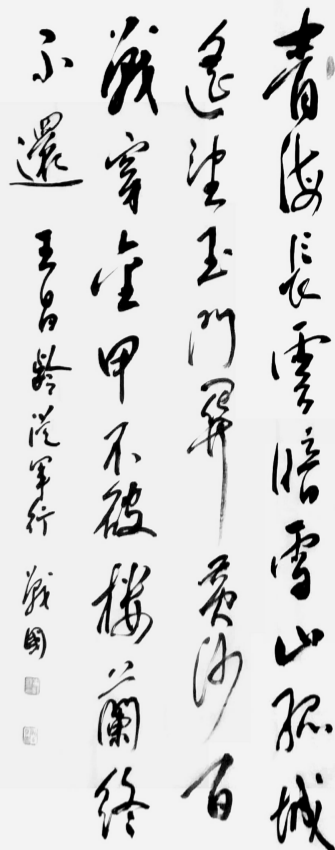 青海長雲暗雪山孤城
遥望玉門關黄沙百
戰穿金甲不破楼蘭終
不還 王昌齡從軍行 戰國